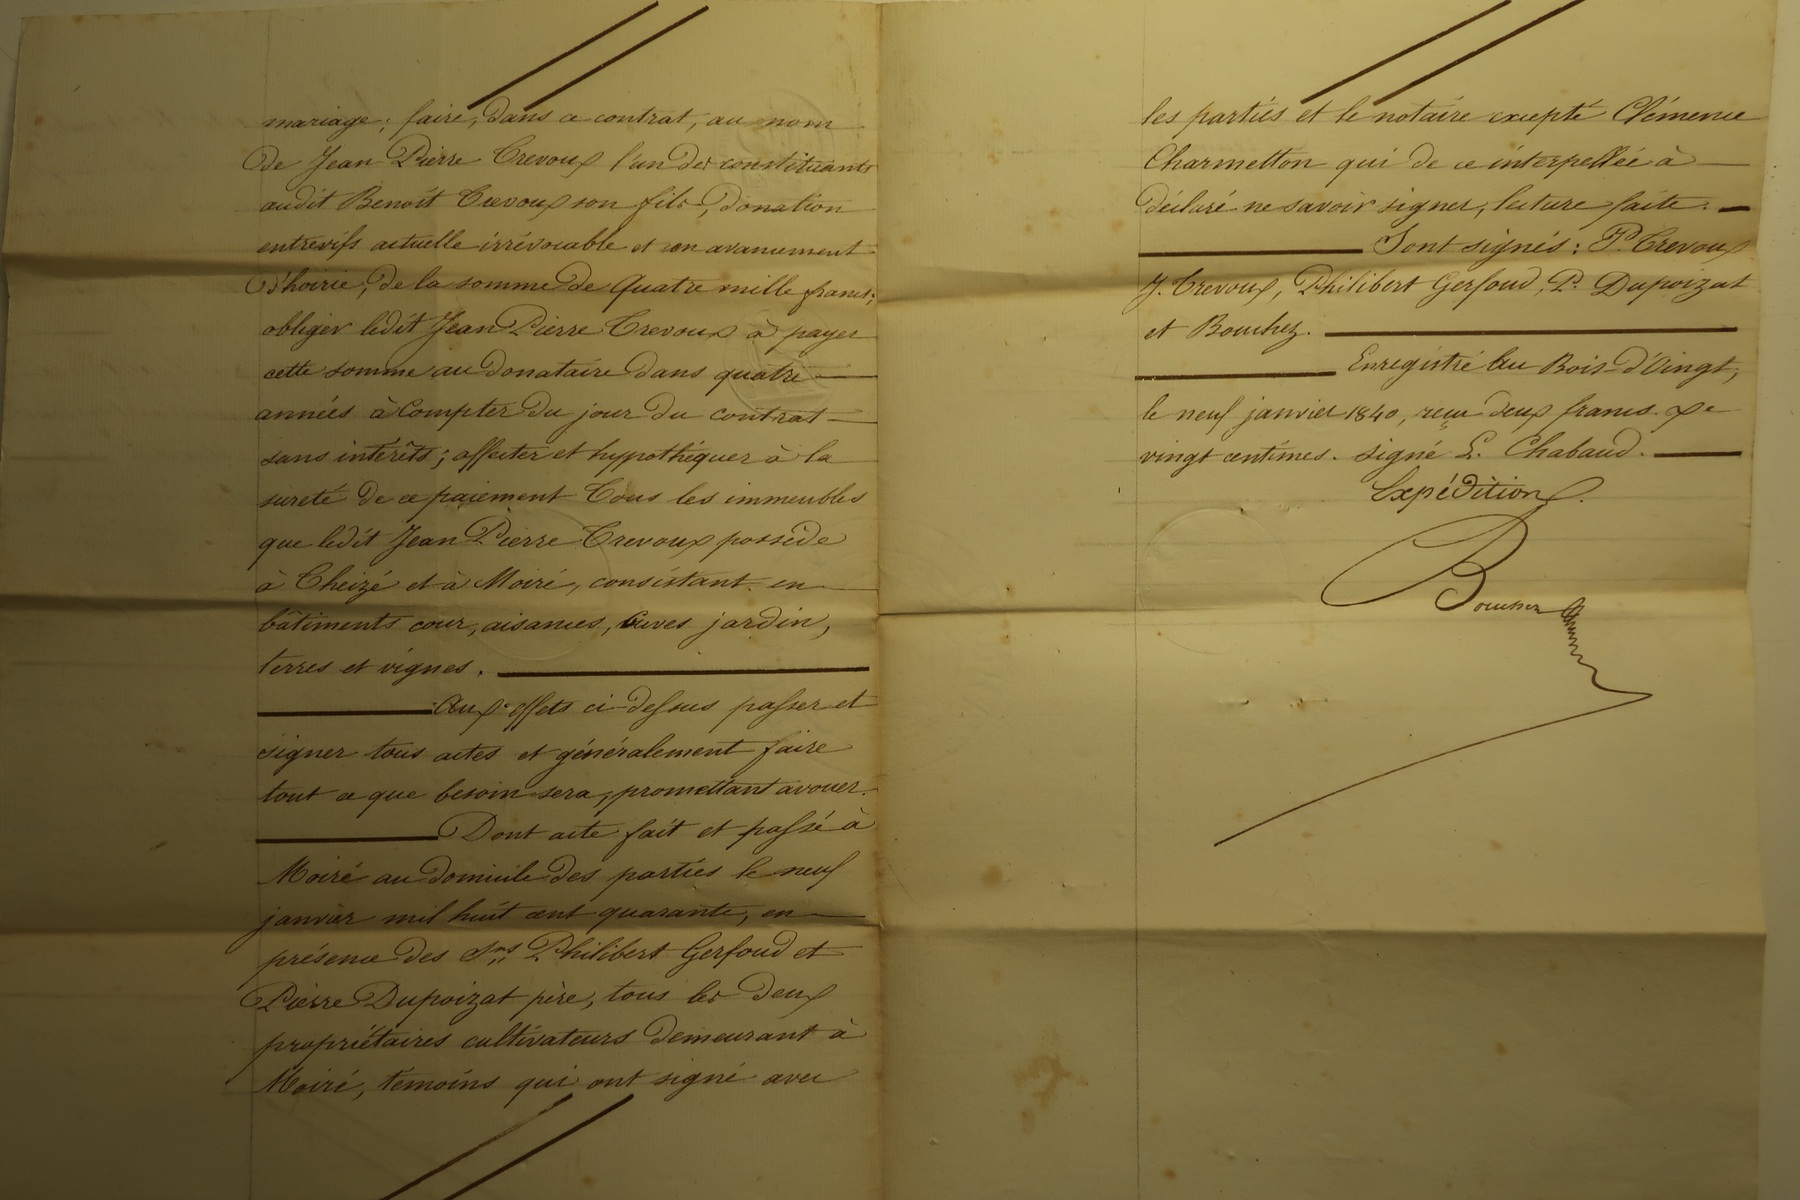 mariage; faire, dans ce contrat, au nom
de Jean Pierre Trevoux l'un des constituants
audit Benoît Trevoux son fils, donation
entrevifs actuelle irrévocable et en avancement
d'hoirie, de la somme de Quatre mille francs;
obliger ledit Jean Pierre Trevoux à payer
cette somme au donataire dans quatre
années à Compter du jour du contrat
sans intérêts; affecter et hypothéquer à la
sureté de ce paiement Tous les immeubles
que ledit Jean Pierre Trevoux possède
à Theizé et à Moiré, consistant en
bâtiments cour, aisances, cuves jardin,
terres et vignes.
Aux effets ci-dessus passer et
signer tous actes et généralement faire
tout ce que besoin sera, promettant avouer.
Dont acte fait et passé à
Moiré au domicile des parties le neuf
janvier mil huit cent quarante, en
présence des Srs Philibert Gerfoud et
Pierre Dupoizat père, tous les deux
propriétaires cultivateurs demeurant à
Moiré, témoins qui ont signé avec
les parties et le notaire excepté Clémence
Charmetton qui de ce interpellée à
déclaré ne savoir signer, lecture faite.
Sont signés: P. Trevoux
J. Trevoux, Philibert Gerfoud, P. Dupoizat
et Bouchez.
Enregistré au Bois-d'Oingt,
le neuf janvier 1840, reçu deux francs
vingt centimes. signé L. Chabaud.
Expédition.
Bouchez